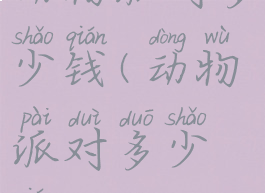 shǎo qián dòng wù
少钱(动物
pài duì duō shǎo
派对多少